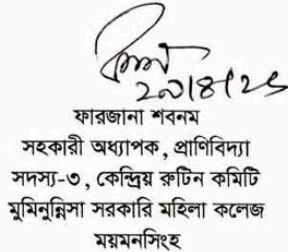 ২০/৪/২৫
ফারজানা শবনম
সহকারী অধ্যাপক, প্রাণিবিদ্যা
সদস্য-৩, কেন্দ্রিয় রুটিন কমিটি
মুমিনুন্নিসা সরকারি মহিলা কলেজ
ময়মনসিংহ